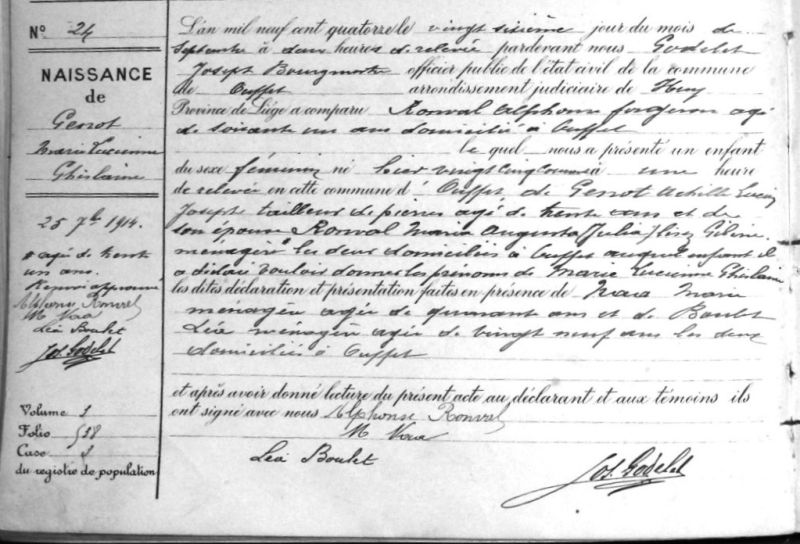 N° 24
NAISSANCE
de
Genot
Marie Lucienne
Ghislaine
25 7bre 1914.
# agée de trente
un ans.
Renvoi approuvé
Alphonse Ronval
M Vaa
Léa Boulet
Jos. Godelet
Volume 1
Folio 538
Case
du registre de population
L'an mil neuf cent quatorze le vingt sixième jour du mois de
Septembre à deux heures de relevée pardevant nous Godelet
Joseph Bourgmestre officier public de l'état civil de la commune
de Ouffet arrondissement judiciaire de Huy
Province de Liége a comparu Ronval Alphonse forgeron agé
de soixante un ans domicilié à Ouffet
le quel nous a présenté un enfant
du sexe féminin né hier vingt cinq courant à une heure
de relevée en cette commune d' Ouffet de Genot Achille Lucien
Joseph tailleur de pierres agé de trente ans et de
son épouse Ronval Maria Augusta Julia
ménagère # les deux domiciliés à Ouffet auquel enfant il
a déclaré vouloir donner les prénoms de Marie Lucienne Ghislaine
les dites déclaration et présentation faites en présence de Marie
ménagère agée de quarante ans et de Boulet
Léa ménagère agée de vingt neuf ans les deux
domiciliés à Ouffet
et après avoir donné lecture du présent acte au déclarant et aux témoins ils
ont signé avec nous Alphonse Ronval
M Vaa
Léa Boulet
Jos. Godelet